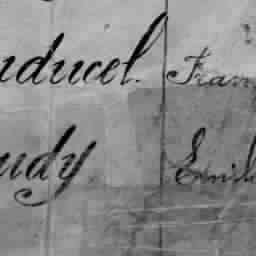 uducel. Fran
udy Emil